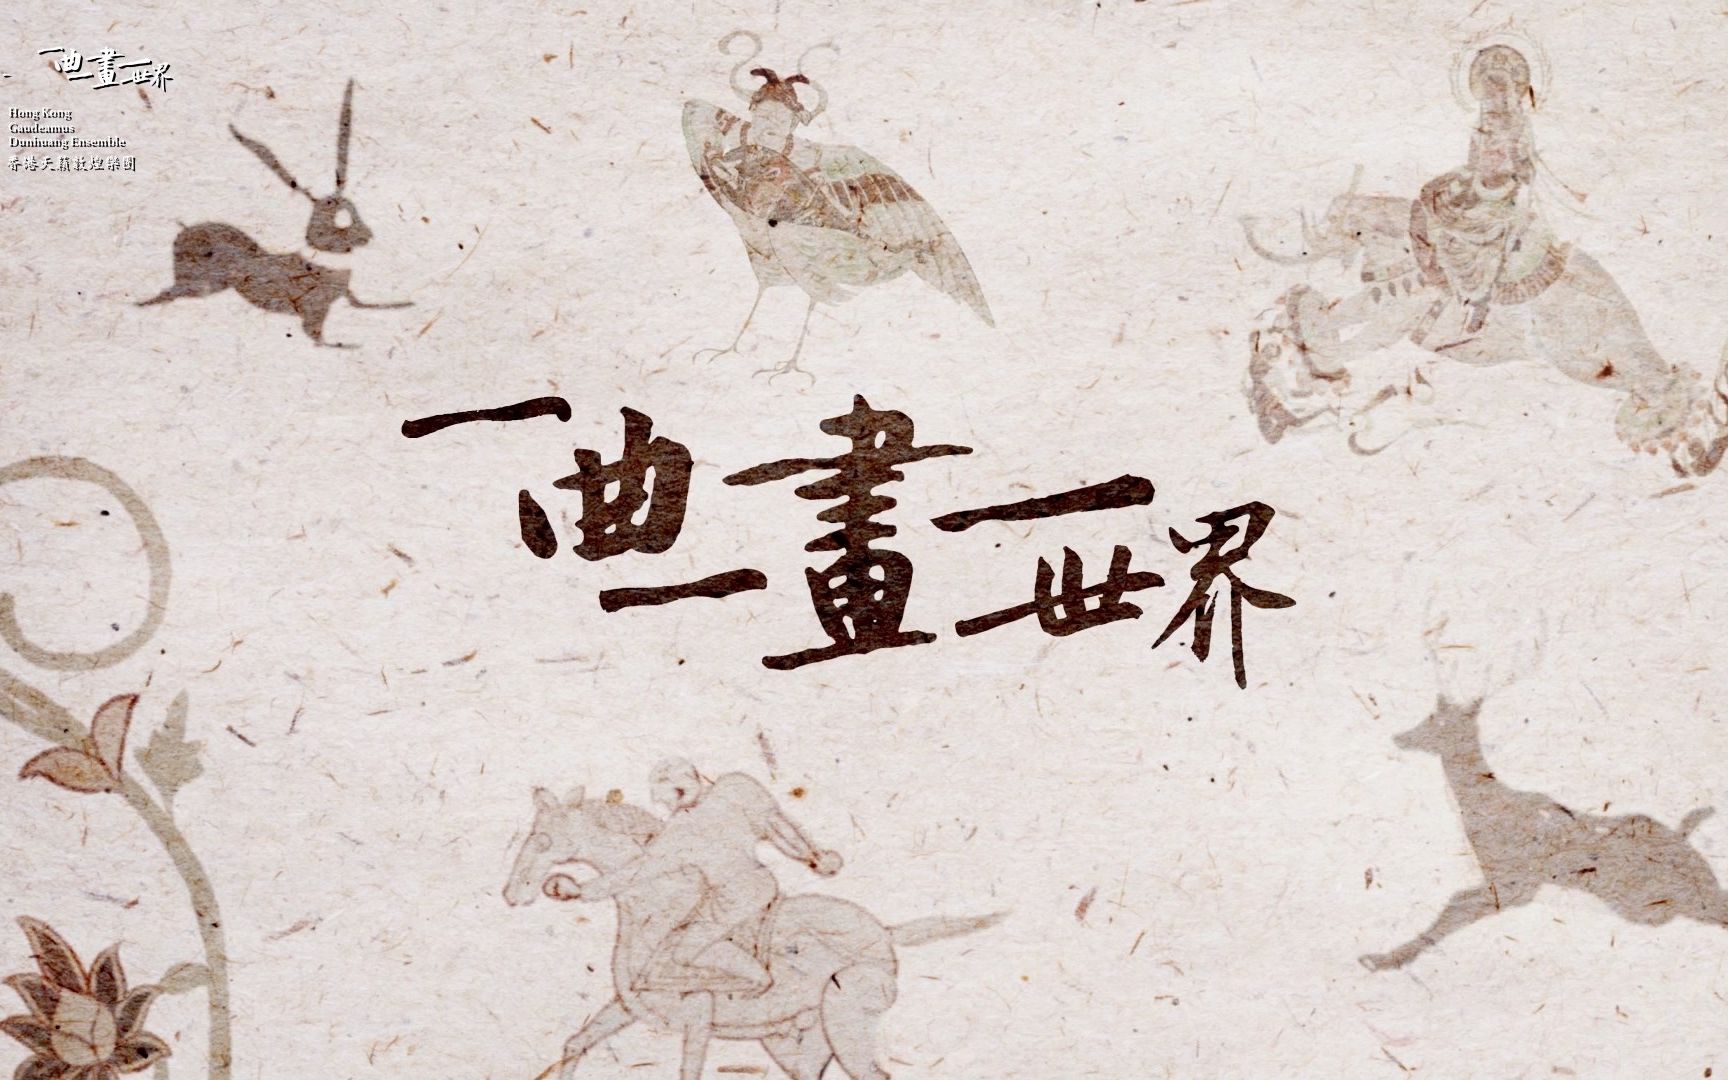 一曲一畫一世界
Hong Kong
Gaudeamus
Dunhuang Ensemble
香港天籟敦煌樂團
一曲一畫一世界